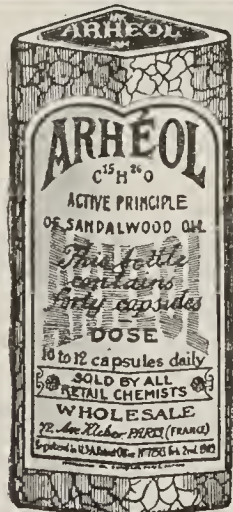 ARHÉOL
ARHÉOL
C¹⁵H²⁶O
ACTIVE PRINCIPLE
OF SANDALWOOD OIL
This bottle
contains
forty capsules
DOSE
10 to 12 capsules daily
SOLD BY ALL
RETAIL CHEMISTS
WHOLESALE
72, Ave Kléber PARIS (FRANCE)
Registered in U.S.A. Patent Office